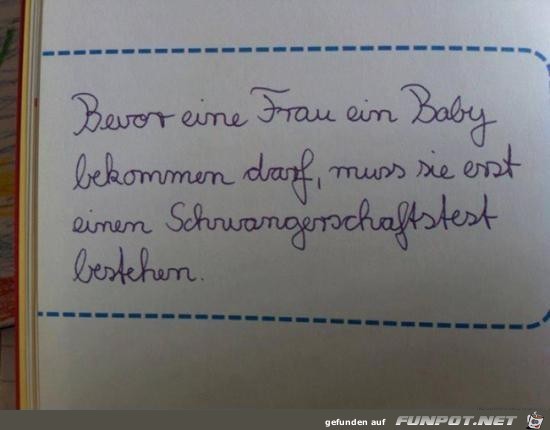 Bevor eine Frau ein Baby
bekommen darf, muss sie erst
einen Schwangerschaftstest
bestehen.
gefunden auf FUNPOT.NET